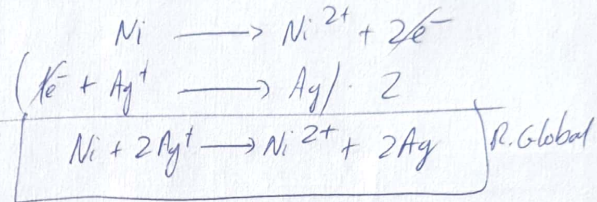 Ni ⟶ Ni²⁺ + 2e⁻
(1e⁻ + Ag⁺ ⟶ Ag) · 2
Ni + 2Ag⁺ ⟶ Ni²⁺ + 2Ag R. Global